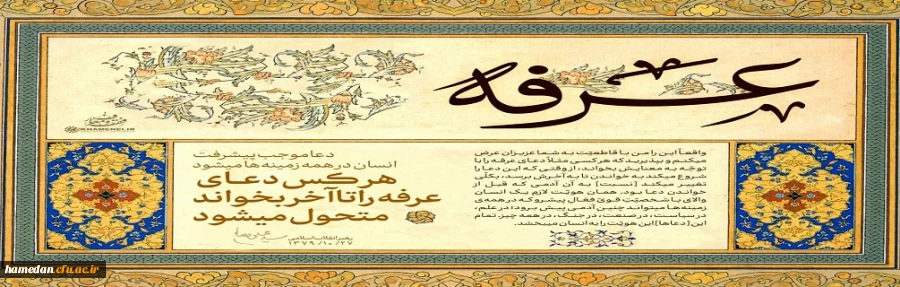 عرفه
واقعاً این را من با قاطعیّت به شما عزیزان عرض
میکنم و بپذیرید که هر کسی مثلاً دعای عرفه را با
توجّه به معنایش بخواند، از وقتی که این دعا را
شروع میکند به خواندن، تا به آخرش برسد، بکلّی
تغییر میکند [نسبت] به آن آدمی که قبل از
خواندن دعا بود. همان هویّت لازم یک انسان
والای با شخصیّتِ قویّ فعّالِ پیشرو که در همه‌ی
زمینه‌ها میتواند چنین آدمی پیش برود؛ در علم،
در سیاست، در صنعت، در جنگ، در همه چیز. تمام
این [دعاها] این هویّت را به انسان میبخشد.
دعا موجب پیشرفت
انسان در همه زمینه‌ها میشود
هر کس دعای
عرفه را تا آخر بخواند
متحول میشود
رهبر انقلاب اسلامی
۱۳۷۹/۱۰/۲۷
KHAMENEI.IR
hamedan.cfu.ac.ir